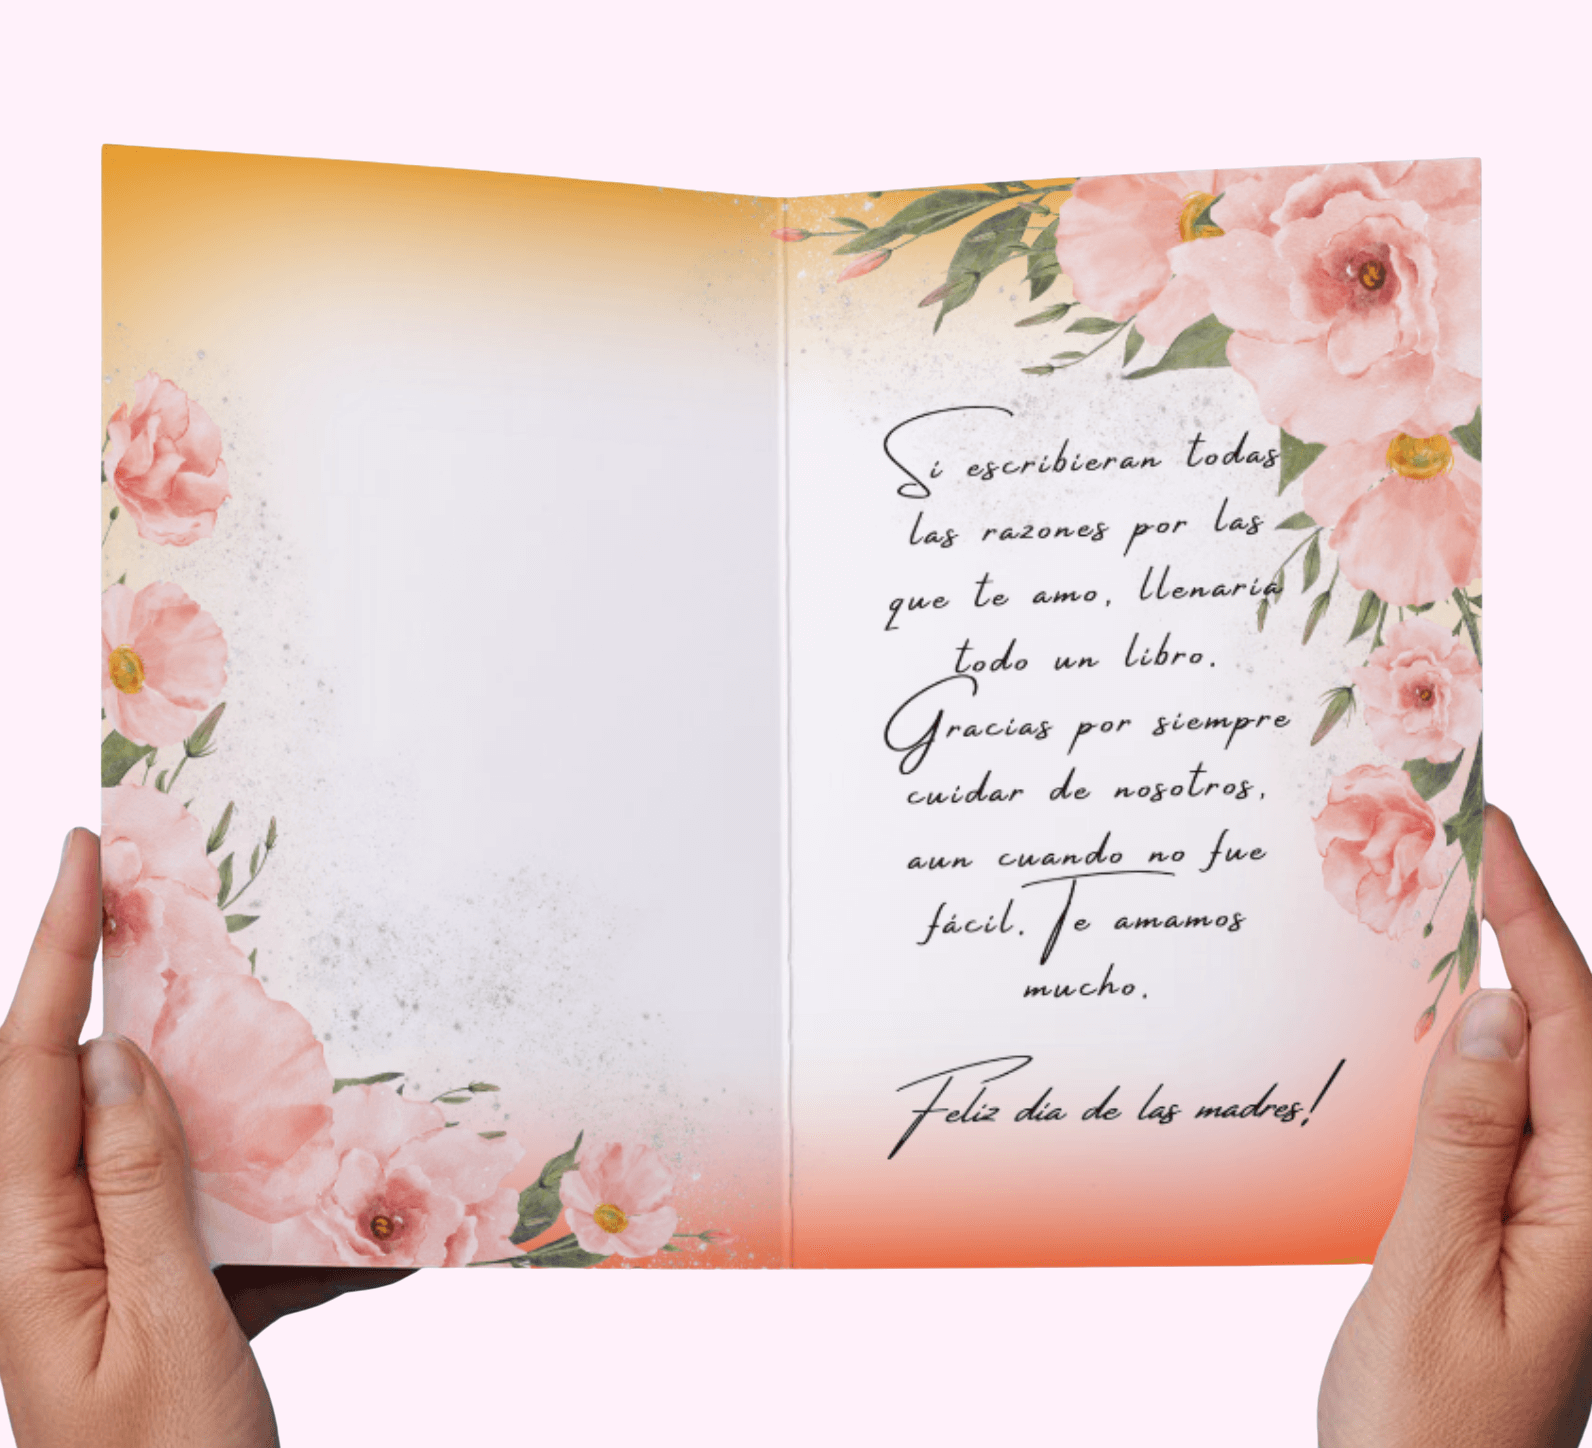 Si escribieran todas
las razones por las
que te amo, llenaria
todo un libro.
Gracias por siempre
cuidar de nosotros,
aun cuando no fue
fácil. Te amamos
mucho.
Feliz dia de las madres!